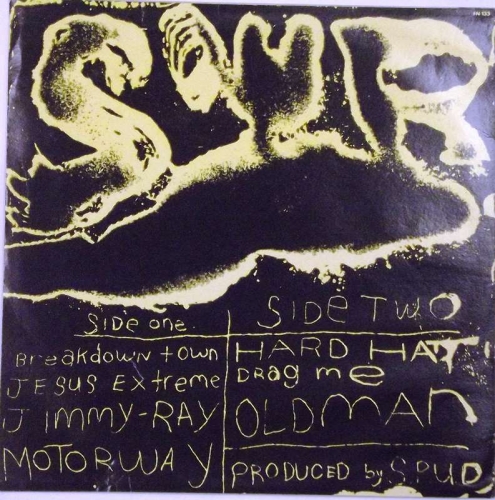 SPUD
SIDe one
Breakdown town
JESUS EXtreme
JIMMY-RAY
MOTORWAY
SIDe TWO
HARD HAT
DRag me
OLDMAn
PRODUCED by S.P.U.D